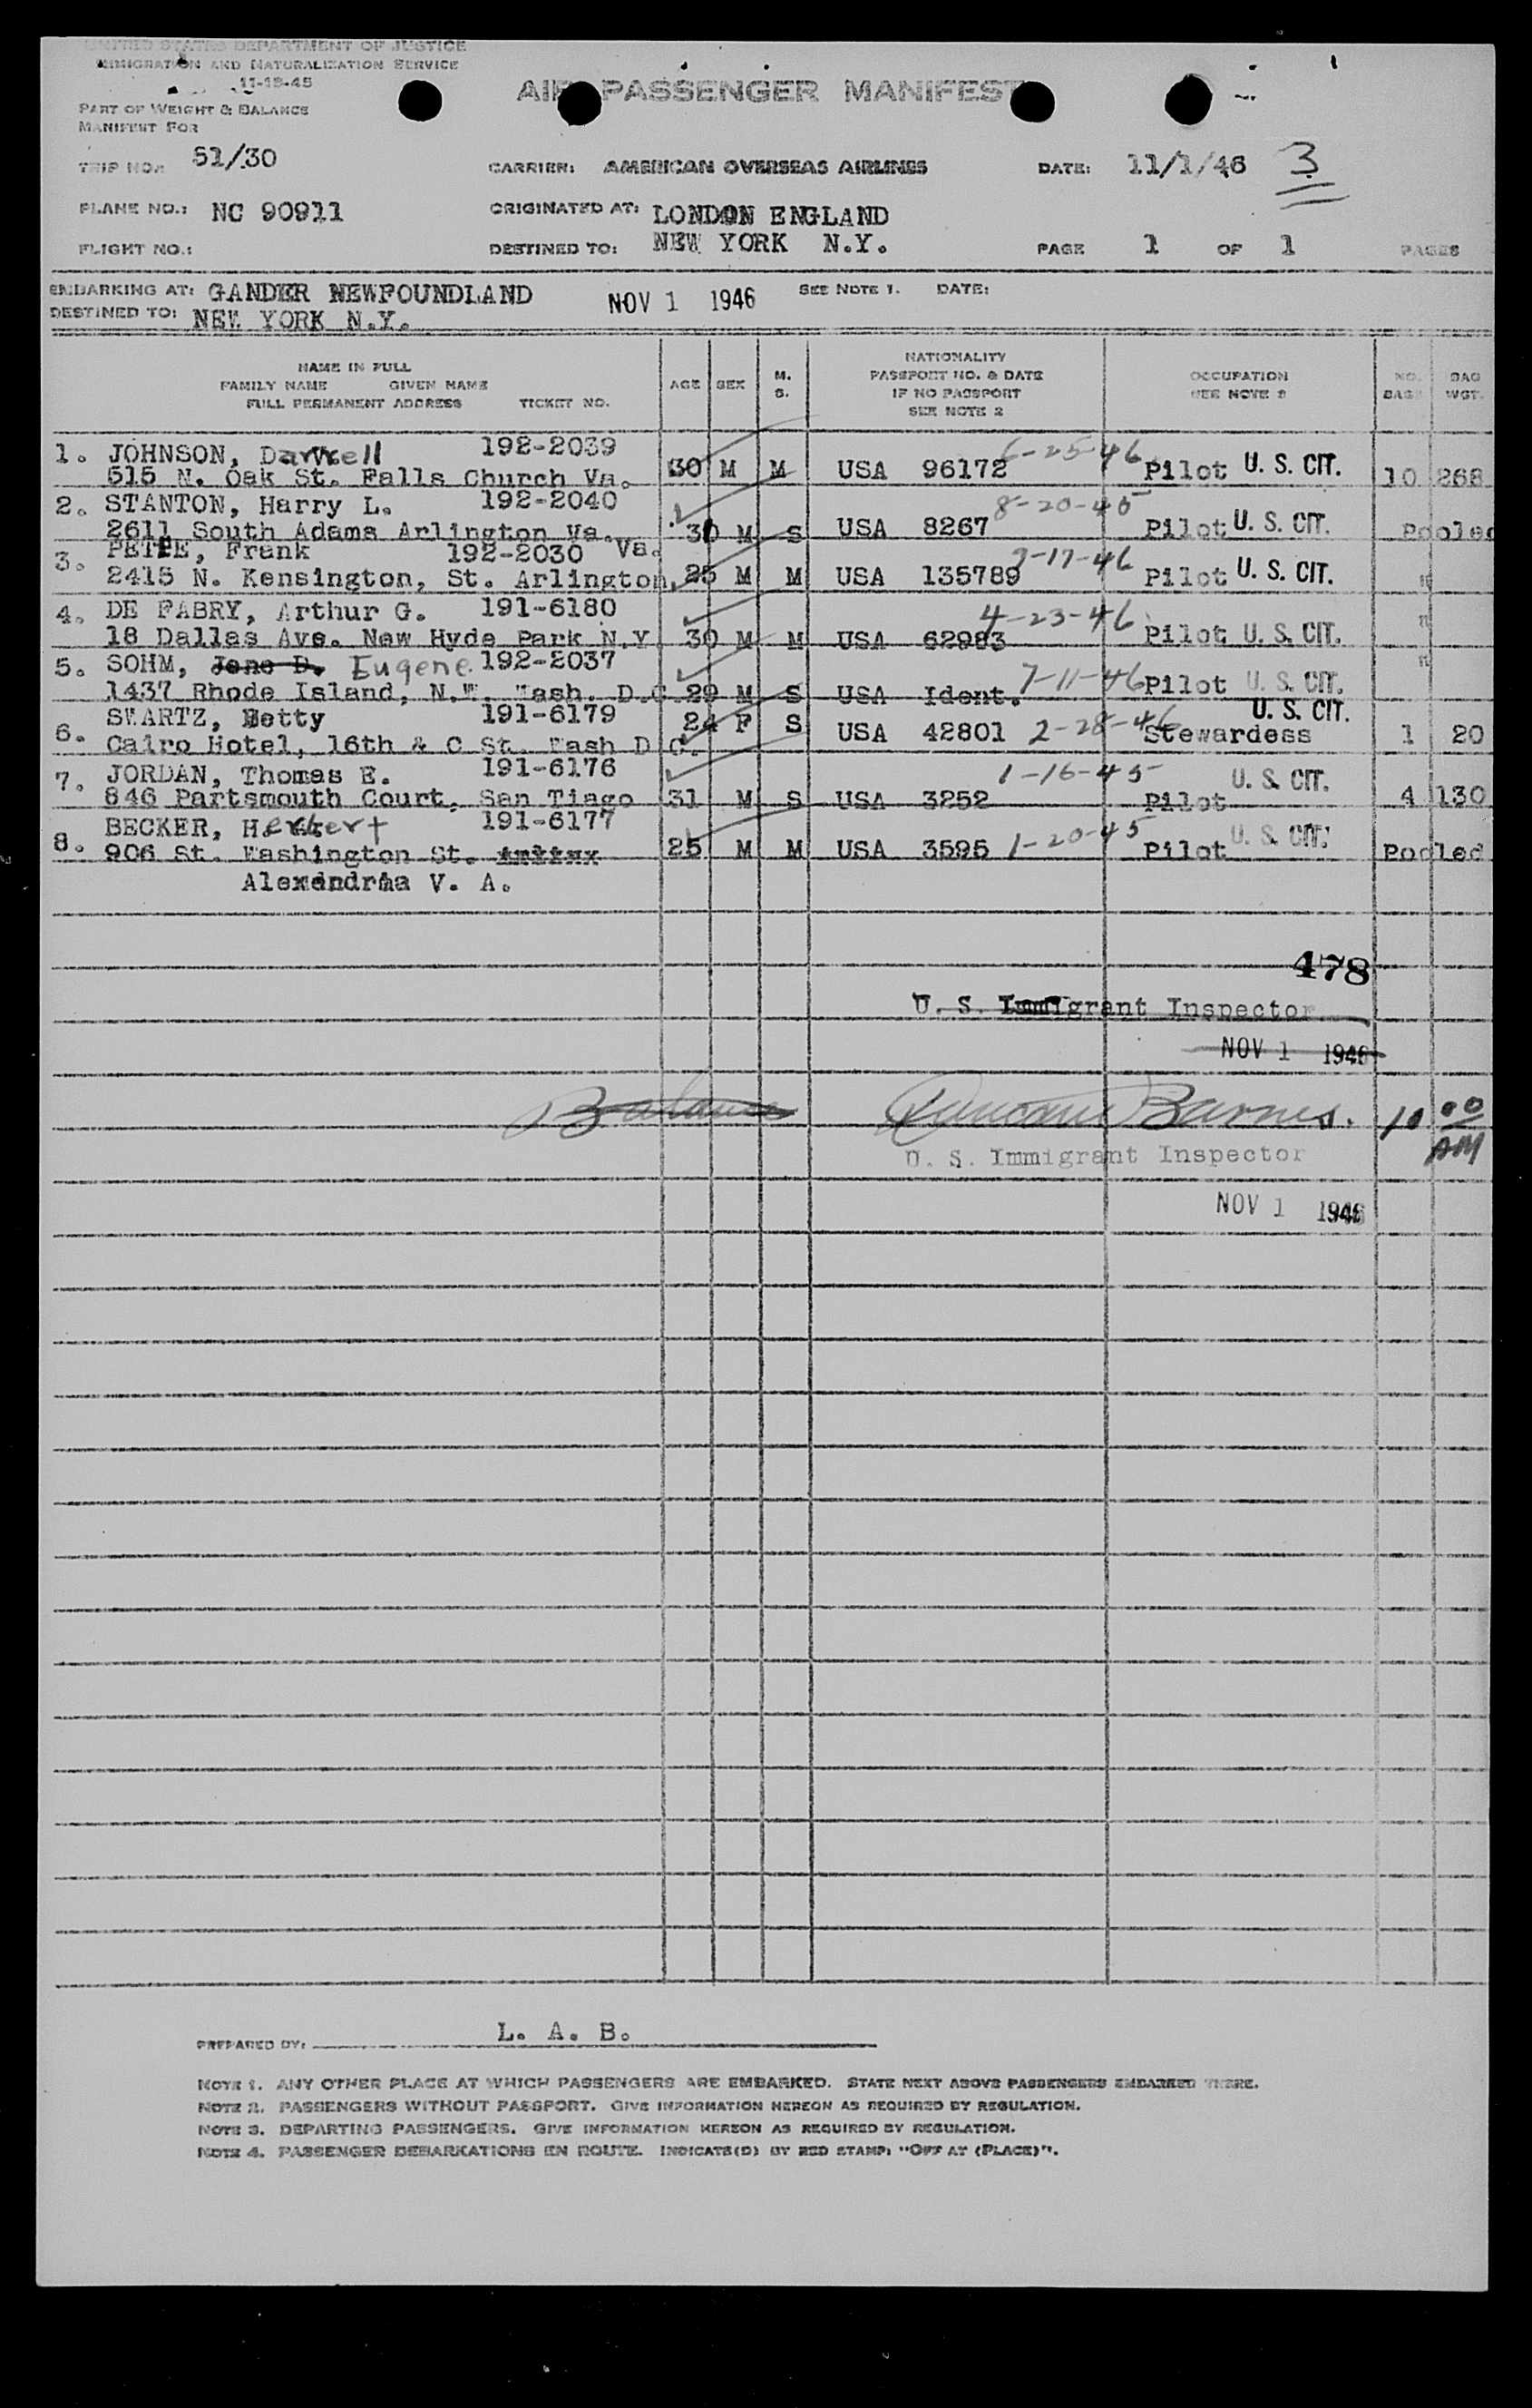 UNITED STATES DEPARTMENT OF JUSTICE
IMMIGRATION AND NATURALIZATION SERVICE
11-18-45
AIR PASSENGER MANIFEST
PART OF WEIGHT & BALANCE
MANIFEST FOR
TRIP NO.: 51/30 CARRIER: AMERICAN OVERSEAS AIRLINES DATE: 11/1/46 3
PLANE NO.: NC 90911 ORIGINATED AT: LONDON ENGLAND
FLIGHT NO.: DESTINED TO: NEW YORK N.Y. PAGE 1 OF 1 PAGES
EMBARKING AT: GANDER NEWFOUNDLAND NOV 1 1946 SEE NOTE 1. DATE:
DESTINED TO: NEW YORK N.Y.
NAME IN FULL
FAMILY NAME GIVEN NAME
FULL PERMANENT ADDRESS TICKET NO.
AGE SEX M. S.
NATIONALITY
PASSPORT NO. & DATE
IF NO PASSPORT
SEE NOTE 2
OCCUPATION
SEE NOTE 3
NO. BAGS
BAG WGT.
1. JOHNSON, Darrell 192-2039
515 N. Oak St. Falls Church Va. 30 M M USA 96172 6-25-46 Pilot U. S. CIT. 10 268
2. STANTON, Harry L. 192-2040
2611 South Adams Arlington Va. 30 M S USA 8267 8-20-45 Pilot U. S. CIT. Pooled
3. PETTE, Frank 192-2030 Va.
2415 N. Kensington, St. Arlington, 25 M M USA 135789 9-17-46 Pilot U. S. CIT. "
4. DE FABRY, Arthur G. 191-6180
18 Dallas Ave. New Hyde Park N.Y. 30 M M USA 62983 4-23-46 Pilot U. S. CIT. "
5. SOHM, Jene D. Eugene 192-2037
1437 Rhode Island, N.W. Wash. D.C. 29 M S USA Ident. 7-11-46 Pilot U. S. CIT. "
6. SWARTZ, Betty 191-6179
Cairo Hotel, 16th & C St. Wash D C. 24 F S USA 42801 2-28-46 Stewardess U. S. CIT. 1 20
7. JORDAN, Thomas E. 191-6176
846 Partsmouth Court, San Tiago 31 M S USA 3252 1-16-45 Pilot U. S. CIT. 4 130
8. BECKER, Herbert 191-6177
906 St. Washington St. 25 M M USA 3595 1-20-45 Pilot U. S. CIT. Pooled
Alexandria V. A.
478
U. S. Immigrant Inspector
NOV 1 1946
Barnes. 10 00 AM
U. S. Immigrant Inspector
NOV 1 1946
PREPARED BY: L. A. B.
NOTE 1. ANY OTHER PLACE AT WHICH PASSENGERS ARE EMBARKED. STATE NEXT ABOVE PASSENGERS EMBARKED THERE.
NOTE 2. PASSENGERS WITHOUT PASSPORT. GIVE INFORMATION HEREON AS REQUIRED BY REGULATION.
NOTE 3. DEPARTING PASSENGERS. GIVE INFORMATION HEREON AS REQUIRED BY REGULATION.
NOTE 4. PASSENGER DEBARKATIONS EN ROUTE. INDICATE(D) BY RED STAMP: "OFF AT (PLACE)".